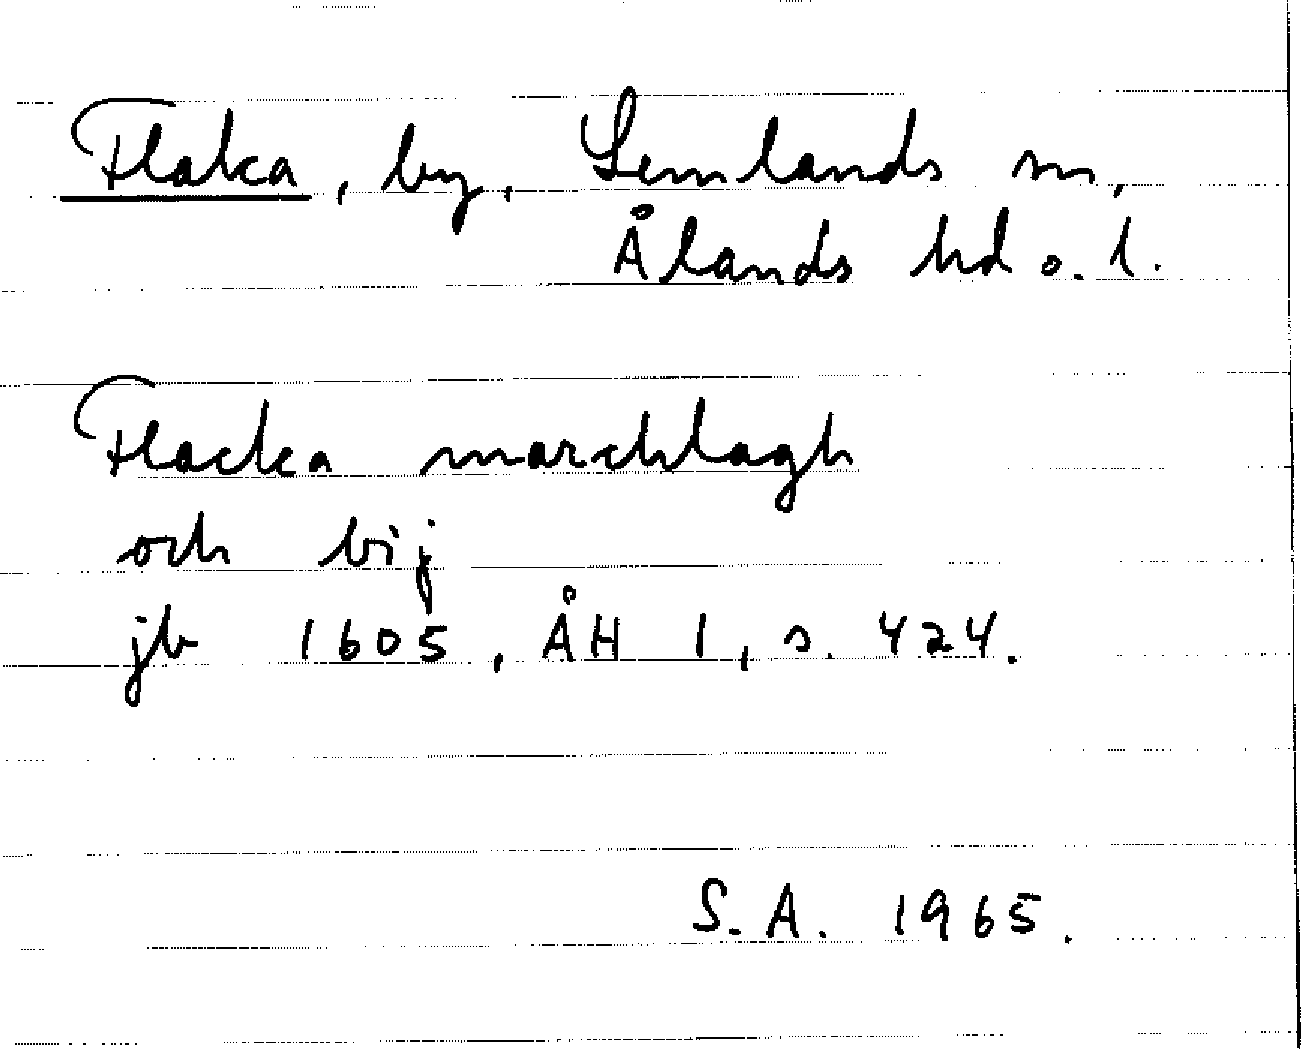 Flaka, by, Lemlands sn,
Ålands hd o. l.
Flacka marchlagh
och bij
jb 1605, ÅH 1, s. 424.
S. A. 1965.